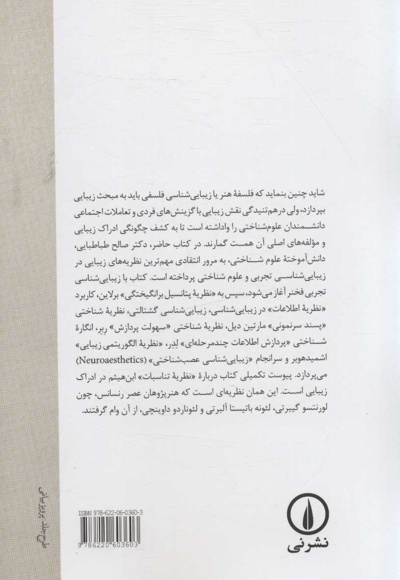 شاید چنین بنماید که فلسفهٔ هنر یا زیبایی‌شناسی فلسفی باید به مبحث زیبایی
بپردازد، ولی درهم‌تنیدگی نقش زیبایی با گزینش‌های فردی و تعاملات اجتماعی
دانشمندان علوم‌شناختی را واداشته است تا به کشف چگونگی ادراک زیبایی
و مؤلفه‌های اصلی آن همت گمارند. در کتاب حاضر، دکتر صالح طباطبایی،
دانش‌آموختهٔ علوم شناختی، به مرور انتقادی مهم‌ترین نظریه‌های زیبایی در
زیبایی‌شناسی تجربی و علوم شناختی پرداخته است. کتاب با زیبایی‌شناسی
تجربی فخنر آغاز می‌شود، سپس به «نظریهٔ پتانسیل برانگیختگی» برلاین، کاربرد
«نظریهٔ اطلاعات» در زیبایی‌شناسی، زیبایی‌شناسی گشتالتی، نظریهٔ شناختی
«پسند سرنمونی» مارتین دیل، نظریهٔ شناختی «سهولت پردازش» ربر، انگارهٔ
شناختی «پردازش اطلاعات چندمرحله‌ای» لدر، «نظریهٔ الگوریتمی زیبایی»
اشمیدهوبر و سرانجام «زیبایی‌شناسی عصب‌شناختی» (Neuroaesthetics)
می‌پردازد. پیوست تکمیلی کتاب دربارهٔ «نظریهٔ تناسبات» ابن‌هیثم در ادراک
زیبایی است. این همان نظریه‌ای است که هنرپژوهان عصر رنسانس، چون
لورنتسو گیبرتی، لئونه باتیستا آلبرتی و لئوناردو داوینچی، از آن وام گرفتند.
طرح جلد: پرویز بیانی
ISBN 978-622-06-0360-3
9 786220 603603
نشرنی